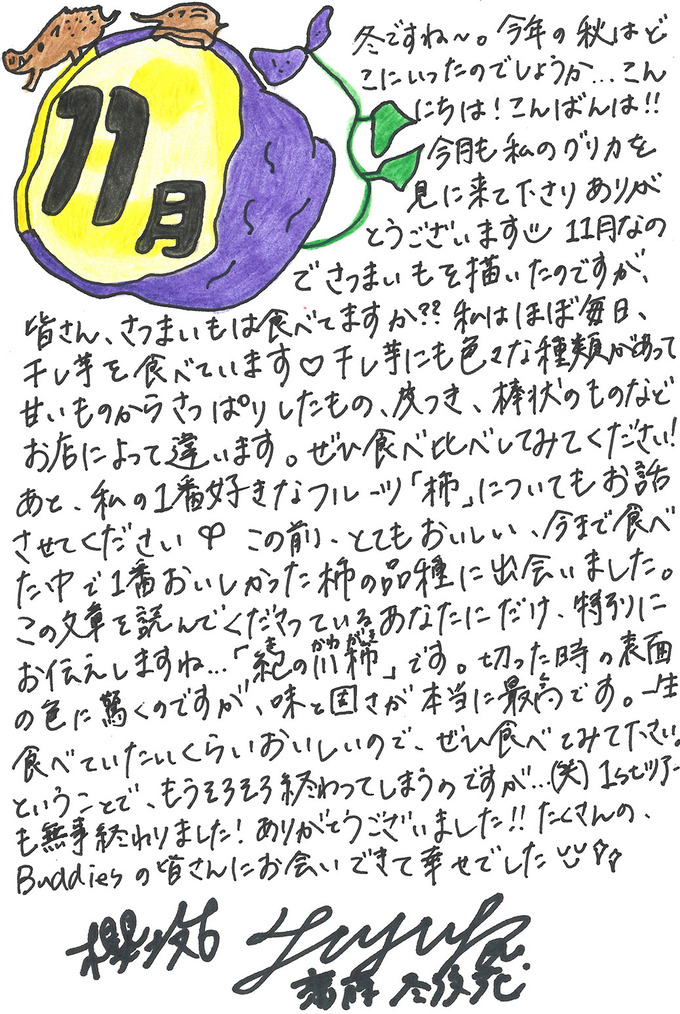 11月
冬ですね～。今年の秋はど
こにいったのでしょうか...こん
にちは！こんばんは!!
今月も私のグリカを
見に来て下さりありが
とうございます 11月なの
でさつまいもを描いたのですが、
皆さん、さつまいもは食べてますか?? 私はほぼ毎日、
干し芋を食べています♡干し芋にも色々な種類があって
甘いものからさっぱりしたもの、皮つき、棒状のものなど
お店によって違います。ぜひ食べ比べしてみてください!
あと、私の1番好きなフルーツ「柿」についてもお話
させてください この前、とてもおいしい、今まで食べ
た中で1番おいしかった柿の品種に出会いました。
この文章を読んでくださっているあなたにだけ、特別に
お伝えしますね...「紀の川柿」です。切った時の表面
の色に驚くのですが、味と固さが本当に最高です。一生
食べていたいくらいおいしいので、ぜひ食べてみて下さい。
ということで、もうそろそろ終わってしまうのですが...(笑) 1stツアー
も無事終わりました！ありがとうございました!! たくさんの、
Buddiesの皆さんにお会いできて幸せでした
櫻坂46
齋藤 冬優花